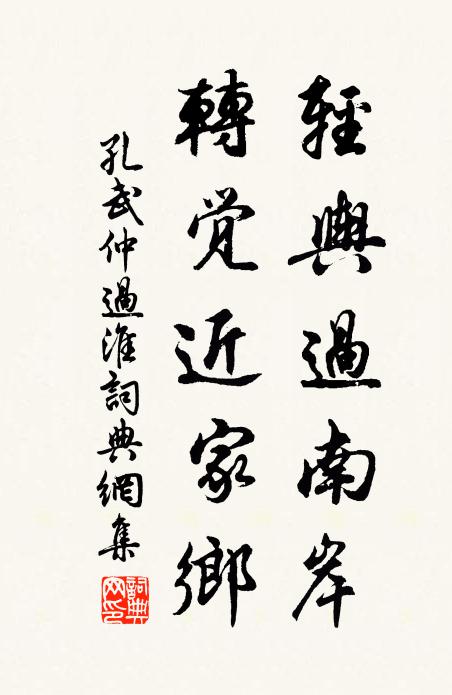 輕輿過南岸
轉覺近家鄉
孔武仲過淮詞典網集
詞典網印